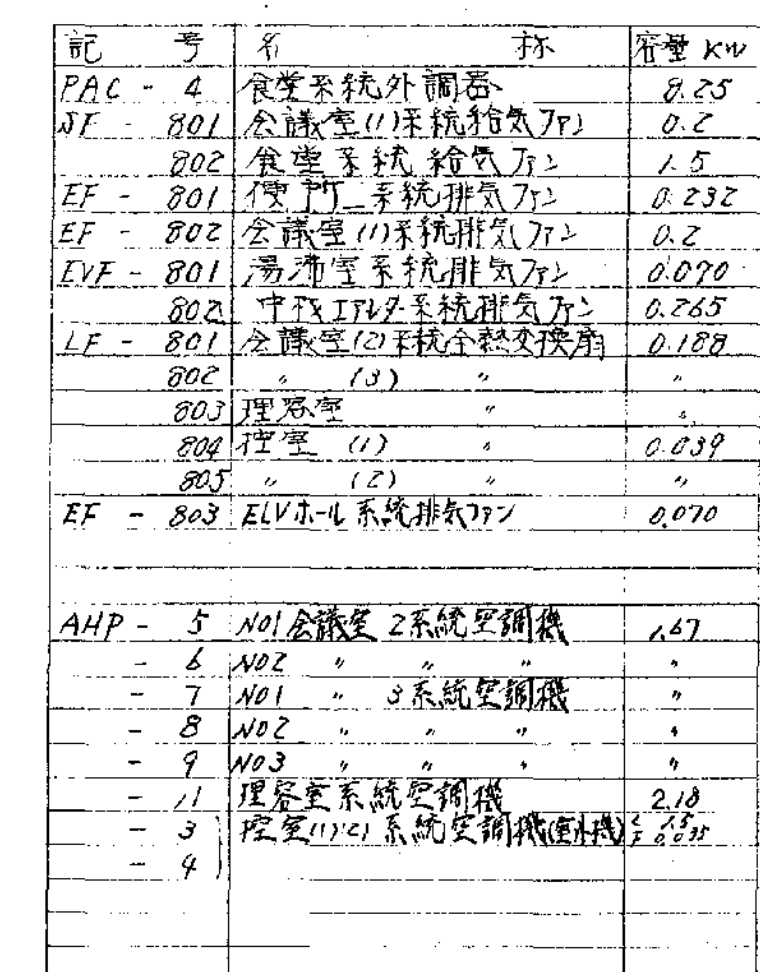 記 号 名 称 容量 KW
PAC - 4 食堂系統外調器 8.25
SF - 801 会議室(1)系統給気ファン 0.2
802 食堂系統給気ファン 1.5
EF - 801 便所系統排気ファン 0.232
EF - 802 会議室(1)系統排気ファン 0.2
EVF - 801 湯沸室系統排気ファン 0.070
802 系統排気ファン 0.265
LF - 801 会議室(2)系統全熱交換扇 0.188
802 〃 (3) 〃 〃
803 理容室 〃 〃
804 控室 (1) 〃 0.039
805 〃 (2) 〃 〃
EF - 803 ELVホール系統排気ファン 0.070
AHP - 5 NO1会議室 2系統空調機 1.67
- 6 NO2 〃 〃 〃 〃
- 7 NO1 〃 3系統空調機 〃
- 8 NO2 〃 〃 〃 〃
- 9 NO3 〃 〃 〃 〃
- 11 理容室系統空調機 2.18
- 3 控室(1)(2)系統空調機(室外機) 1.5 0.035
- 4